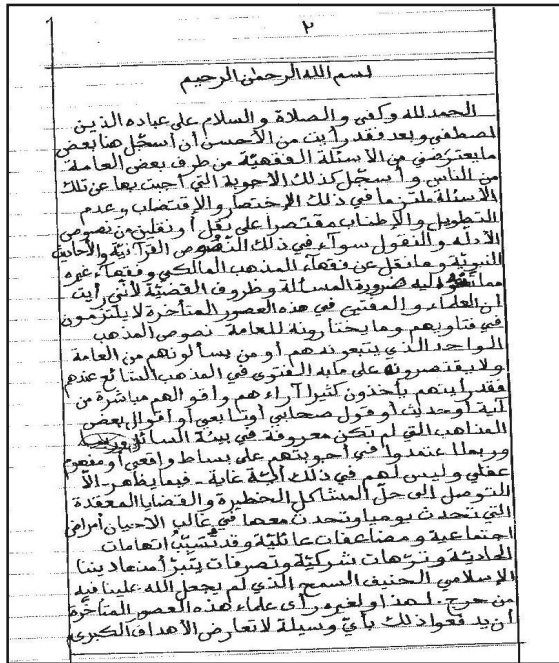 ٢
بسم الله الرحمن الرحيم
الحمد لله وكفى والصلاة والسلام على عباده الذين
اصطفى وبعد فقد رأيت من الأحسن أن أسجل هنا بعض
ما يعترضني من الأسئلة الفقهية من طرف بعض العامة
من الناس وأسجل كذلك الأجوبة التي أجبت بها عن تلك
الأسئلة ملتزما في ذلك الإختصار والإقتضاب وعدم
التطويل والإطناب مقتصرا على نقل أو نقلين من نصوص
الأدلة والنقول سواء في ذلك النصوص القرآنية والأحاديث
النبوية وما نقل عن فقهاء المذهب المالكي وفقهاء غيره
مما إليه ضرورة المسألة وظروف القضية لأنني رأيت
أن العلماء والمفتين في هذه العصور المتأخرة لا يلتزمون
في فتاويهم وما يختارونه للعامة نصوص المذهب
الواحد الذي يتبعونه هم أو من يسألونهم من العامة
ولا يقتصرون على ما به الفتوى في المذهب الشائع عندهم
فقد رأيتهم يأخذون كثيرا آراءهم وأقوالهم مباشرة من
آية أو حديث أو قول صحابي أو تابعي أو أقوال بعض
المذاهب التي لم تكن معروفة في بيئة السائل
وربما اعتمدوا في أجوبتهم على بساط واقعي أو مفهوم
عقلي وليس لهم في ذلك أية غاية - فيما يظهر - إلا
التوصل إلى حل المشاكل الخطيرة والقضايا المعقدة
التي تحدث يوميا وتحدث معها في غالب الأحيان أمراض
اجتماعية ومضاعفات عائلية وقد تسبب اتهامات
إلحادية وترهات شركية وتصرفات يتبرأ منها ديننا
الإسلامي الحنيف السمح الذي لم يجعل الله علينا فيه
من حرج. لهذا ولغيره رأى علماء هذه العصور المتأخرة
أن يدفعوا ذلك بأي وسيلة لا تعارض الأهداف الكبرى